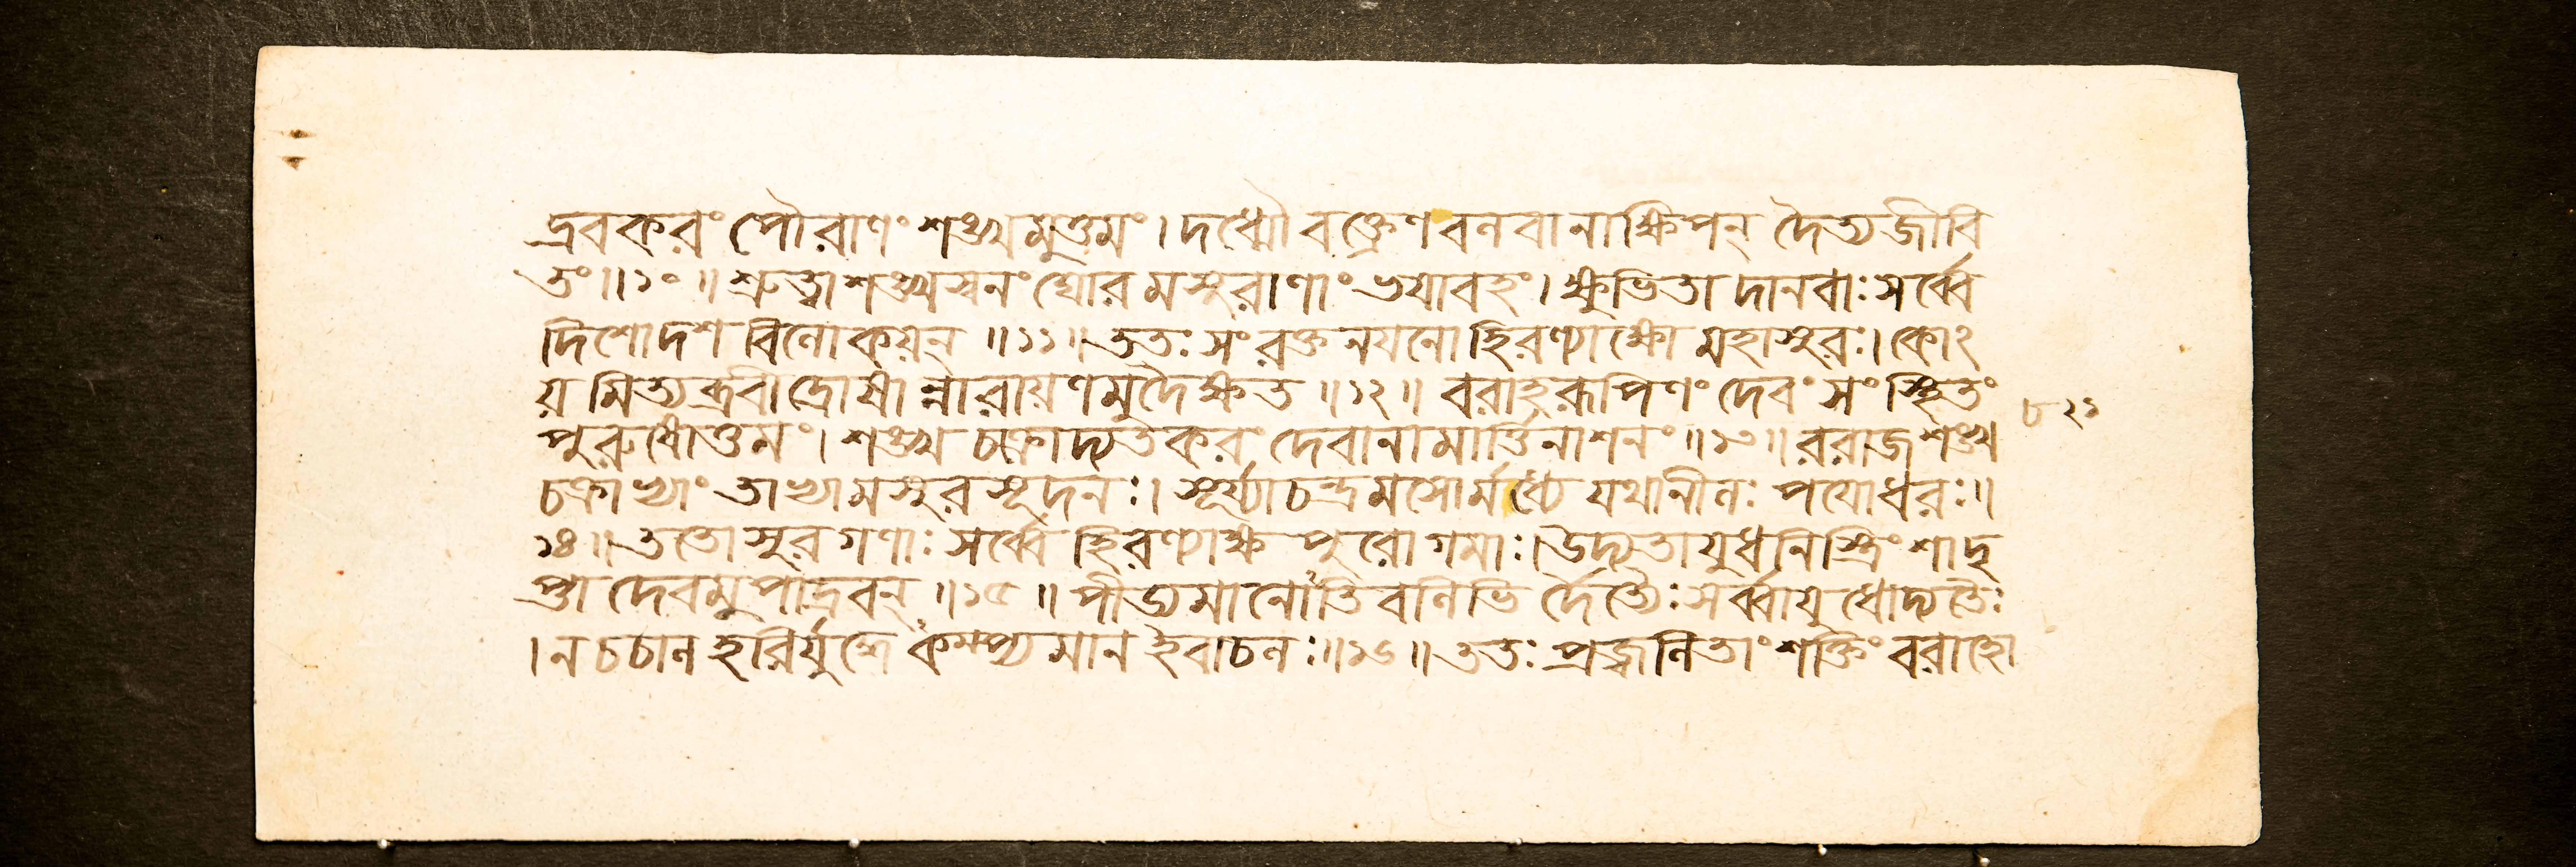 দ্রবকরং পৌরাণং শঙ্খমুত্তমং। দধ্মৌ বক্ত্রেণ বলবানাক্ষিপন্ দৈত্যজীবি
তং॥১০॥ শ্রুত্বা শঙ্খস্বনং ঘোরমসুরাণাং ভয়াবহং। ক্ষুভিতা দানবাঃ সর্ব্বে
দিশোদশ বিলোকয়ন্॥১১॥ ততঃ সংরক্তনয়নো হিরণ্যাক্ষো মহাসুরঃ। কোঽ
য়মিত্যব্রবীদ্রোষান্নারায়ণমুদৈক্ষত॥১২॥ বরাহরূপিণং দেবং সংস্থিতং
পুরুষোত্তমং। শঙ্খচক্রোদ্যতকরং দেবানামার্ত্তিনাশনং॥১৩॥ ররাজ শঙ্খ
চক্রাভ্যাং তাভ্যামসুরসূদনঃ। সূর্য্যাচন্দ্রমসোর্মধ্যে যথা নীলঃ পয়োধরঃ॥
১৪॥ ততোসুরগণাঃ সর্ব্বে হিরণ্যাক্ষপুরোগমাঃ। উদ্যতায়ুধনিস্ত্রিংশাদৃ
প্তা দেবমুপাদ্রবন্॥১৫॥ পীড্যমানোঽতিবলিভির্দৈত্যৈঃ সর্ব্বায়ুধোদ্যতৈঃ
। ন চচাল হরির্যুদ্ধেঽকম্প্যমান ইবাচলঃ॥১৬॥ ততঃ প্রজ্বলিতাং শক্তিং বরাহো
৮২১